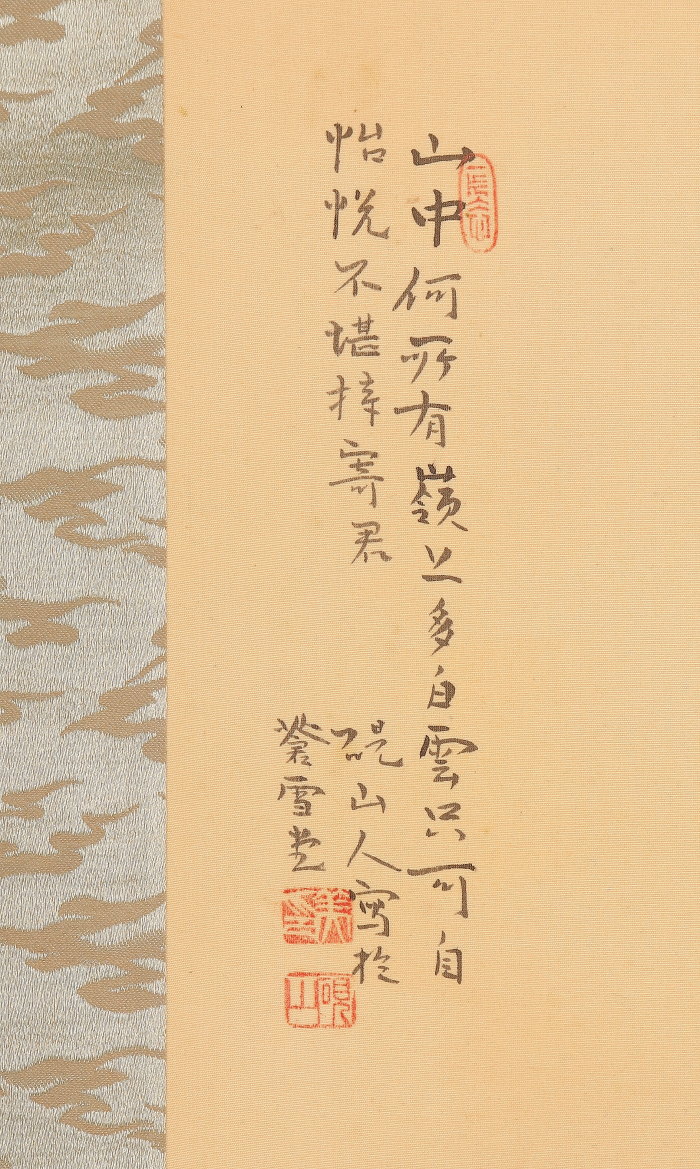 山中何所有嶺上多白雲只可自
怡悦不堪持寄君
硯山人写於
蒼雪堂
硯山